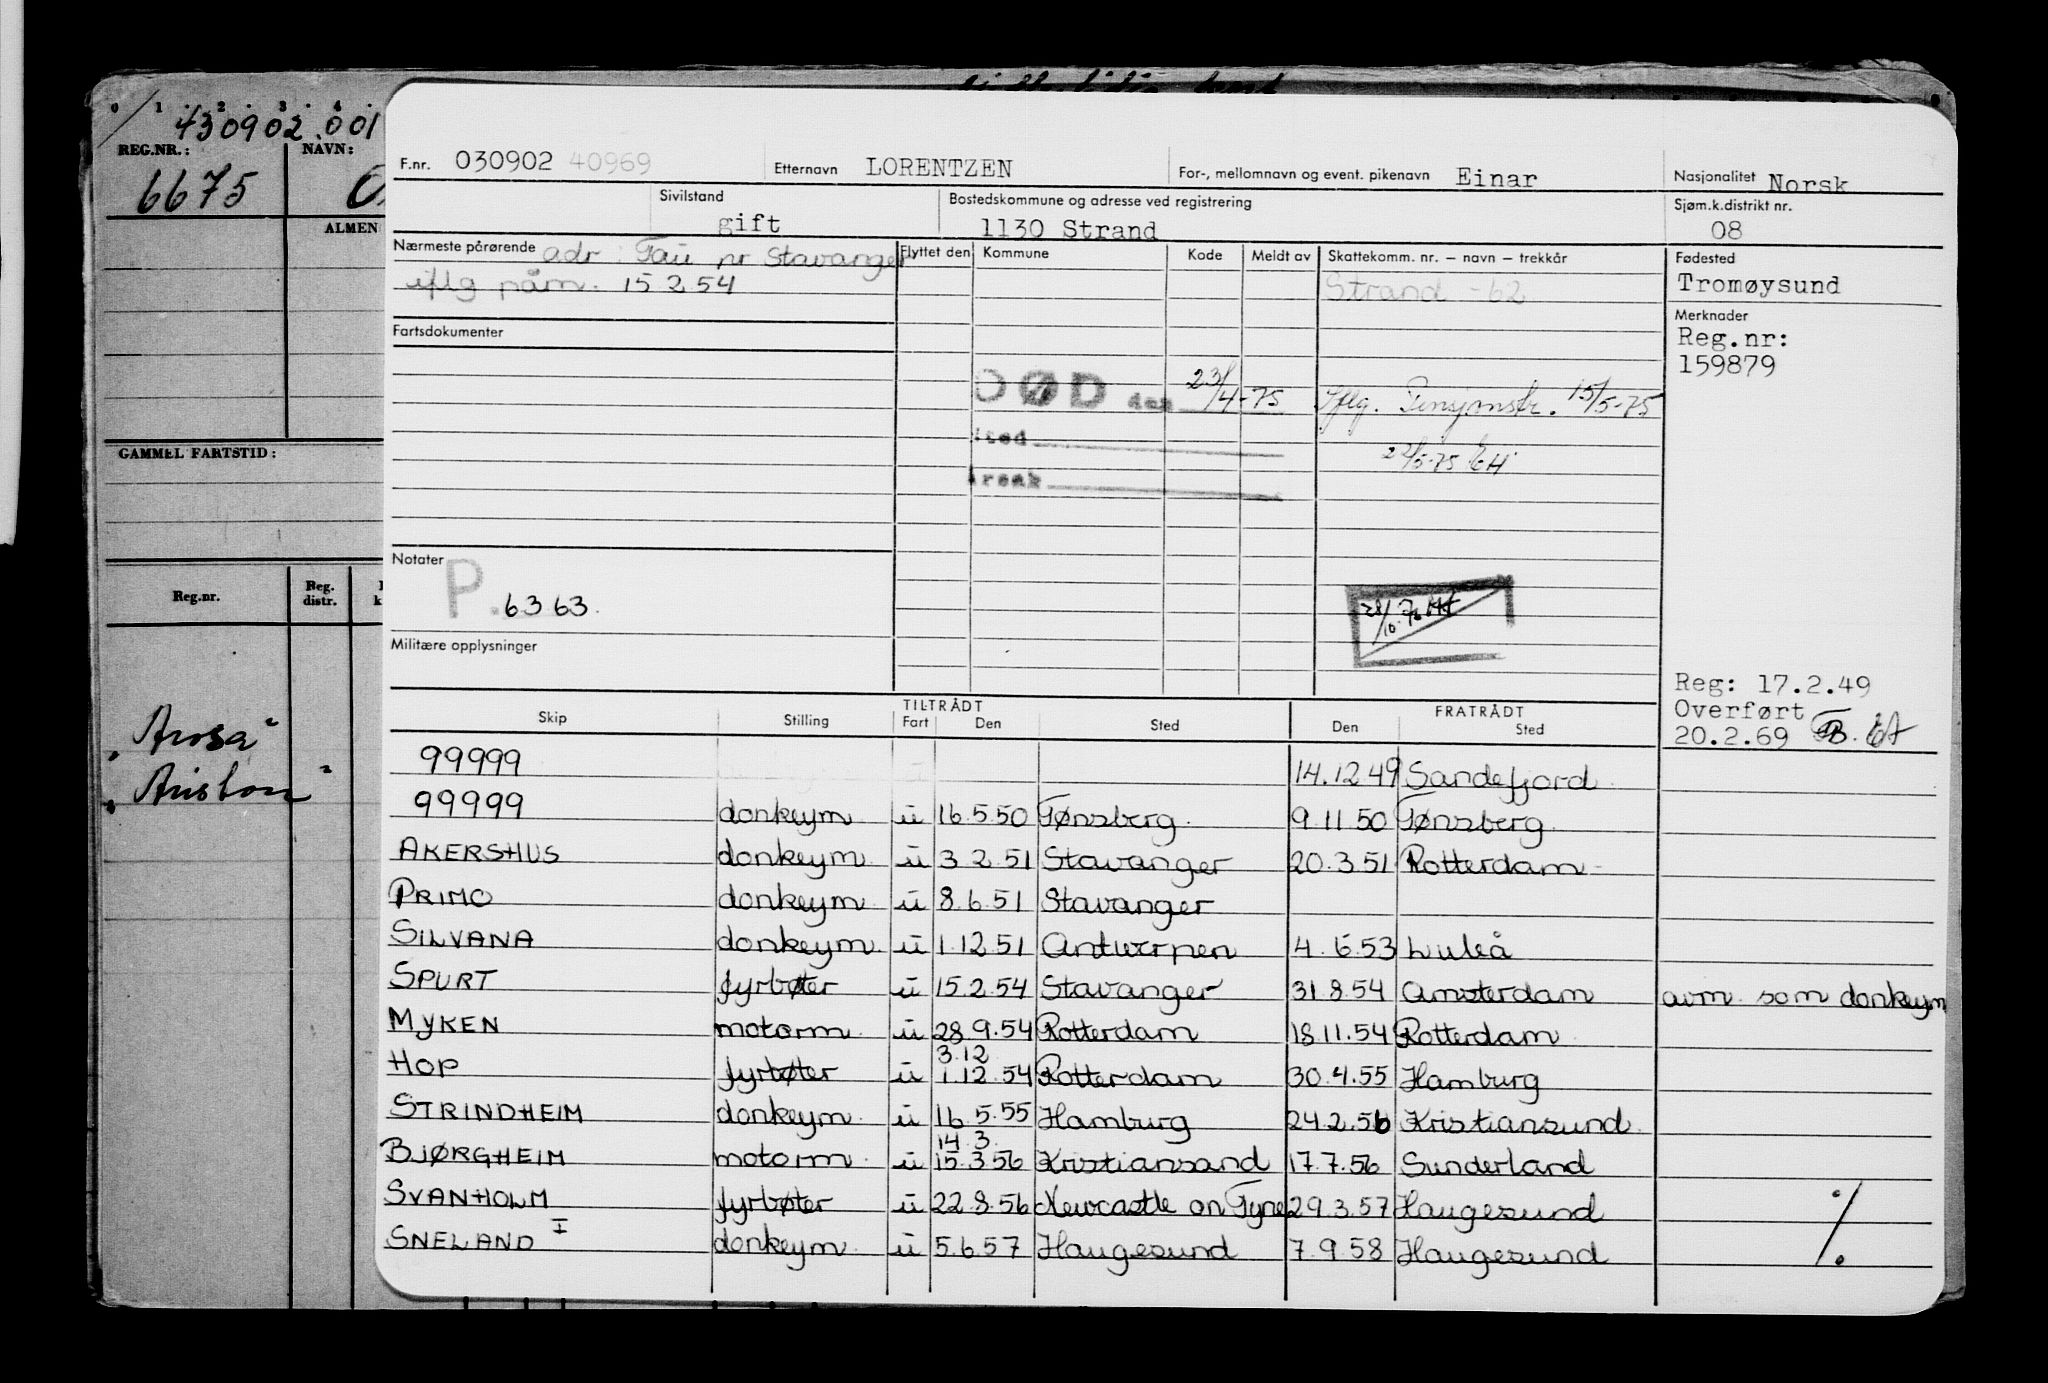 0 1 2 3 4
430902.001
REG.NR.: NAVN:
6675
ALMEN
GAMMEL FARTSTID:
Reg.nr. Reg. distr.
"Arosa"
"Ariston"
F.nr. 030902 40969 Etternavn LORENTZEN For-, mellomnavn og event. pikenavn Einar Nasjonalitet Norsk
Sivilstand gift Bostedskommune og adresse ved registrering 1130 Strand Sjøm.k.distrikt nr. 08
Nærmeste pårørende adr: Tau nr Stavanger Flyttet den Kommune Kode Meldt av Skattekomm. nr. – navn – trekkår Fødested
iflg påm. 15.2.54 Strand -62 Tromøysund
Fartsdokumenter Merknader
Reg.nr:
159879
DØD den 23/4-75 Iflg. 15/5-75
sted 22/5-75 EH
årsak
Notater
P. 6363.
28/10.76
Militære opplysninger
Reg: 17.2.49
Overført
20.2.69
TILTRÅDT FRATRÅDT
Skip Stilling Fart Den Sted Den Sted
99999 14.12.49 Sandefjord
99999 donkeym u 16.5.50 Tønsberg 9.11.50 Tønsberg
AKERSHUS donkeym u 3.2.51 Stavanger 20.3.51 Rotterdam
PRIMO donkeym u 8.6.51 Stavanger
SILVANA donkeym u 1.12.51 Antwerpen 4.6.53 Luleå
SPURT fyrbøter u 15.2.54 Stavanger 31.8.54 Amsterdam avm. som donkeym
MYKEN motorm u 28.9.54 Rotterdam 18.11.54 Rotterdam
3.12
HOP fyrbøter u 1.12.54 Rotterdam 30.4.55 Hamburg
STRINDHEIM donkeym u 16.5.55 Hamburg 24.2.56 Kristiansund
14.3.
BJØRGHEIM motorm. u 15.3.56 Kristiansand 17.7.56 Sunderland
SVANHOLM fyrbøter u 22.8.56 Newcastle on Tyne 29.3.57 Haugesund
SNELAND I donkeym. u 5.6.57 Haugesund 7.9.58 Haugesund
./.